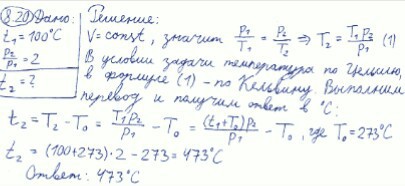 8.20 Дано:
t₁ = 100°C
p₂/p₁ = 2
t₂ = ?
Решение:
V = const, значит p₁/T₁ = p₂/T₂ ⇒ T₂ = T₁p₂/p₁ (1)
В условии задачи температура по Цельсию,
в формуле (1) – по Кельвину. Выполним
перевод и получим ответ в °C:
t₂ = T₂ − T₀ = T₁p₂/p₁ − T₀ = (t₁+T₀)p₂/p₁ − T₀, где T₀ = 273°C
t₂ = (100+273)·2 − 273 = 473°C
Ответ: 473°C